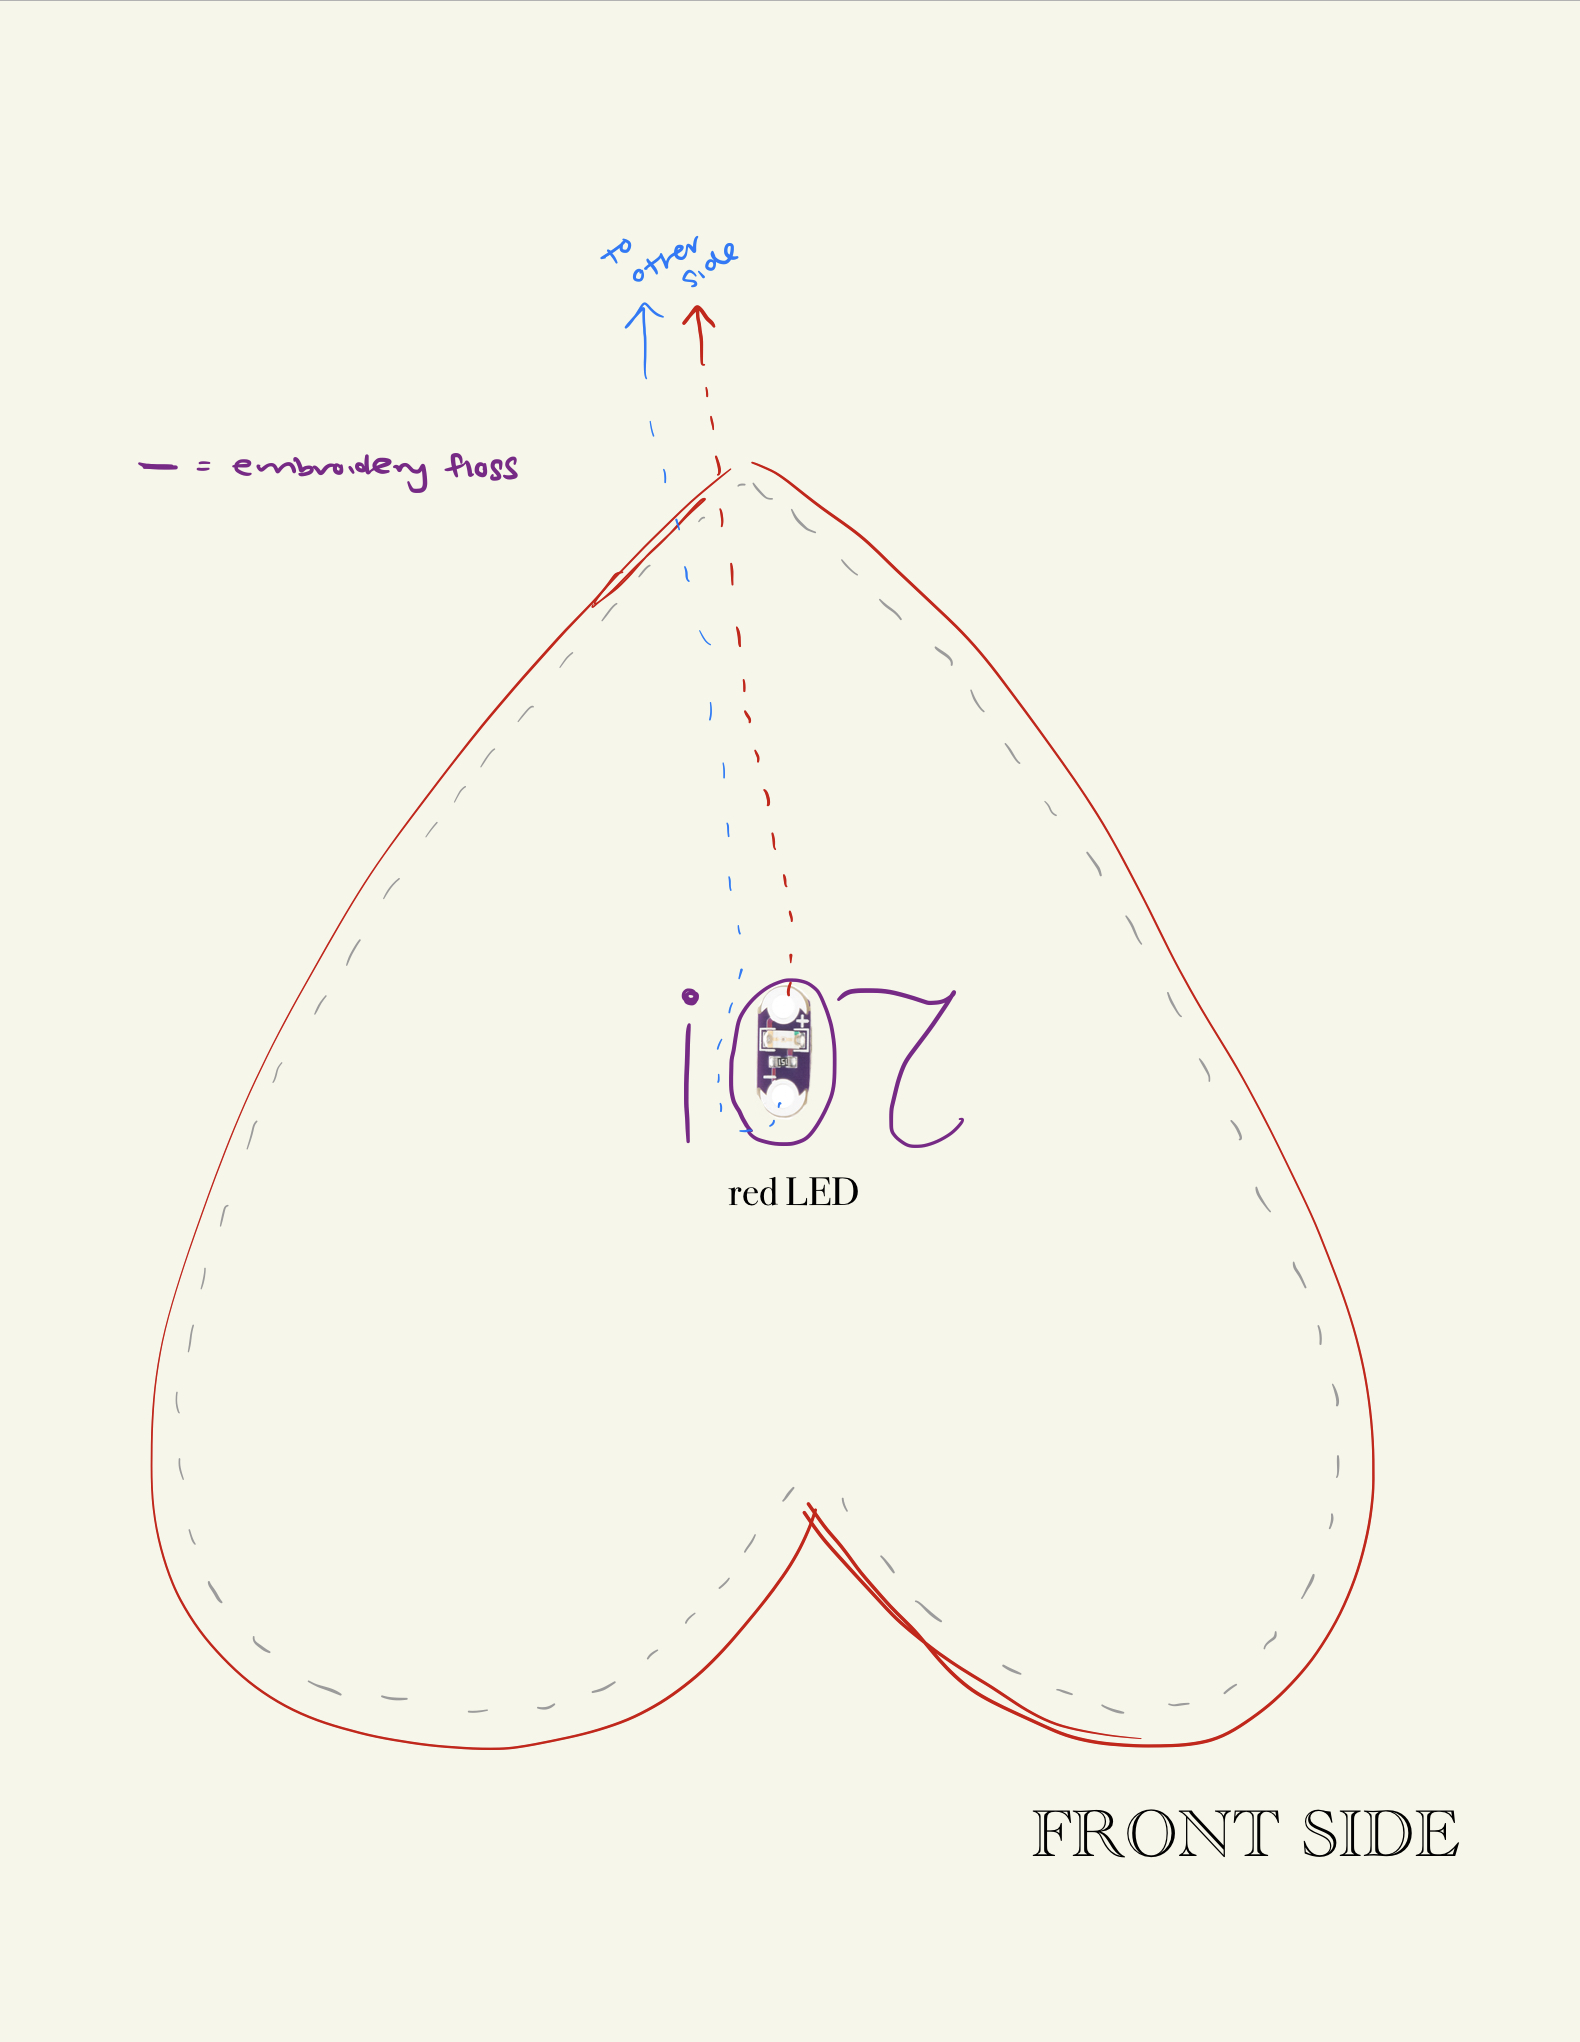 to
other
side
— = embroidery floss
+
151
−
red LED
FRONT SIDE